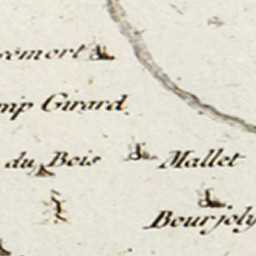 mp Girard
du Bois
Mallet
Bourjoly